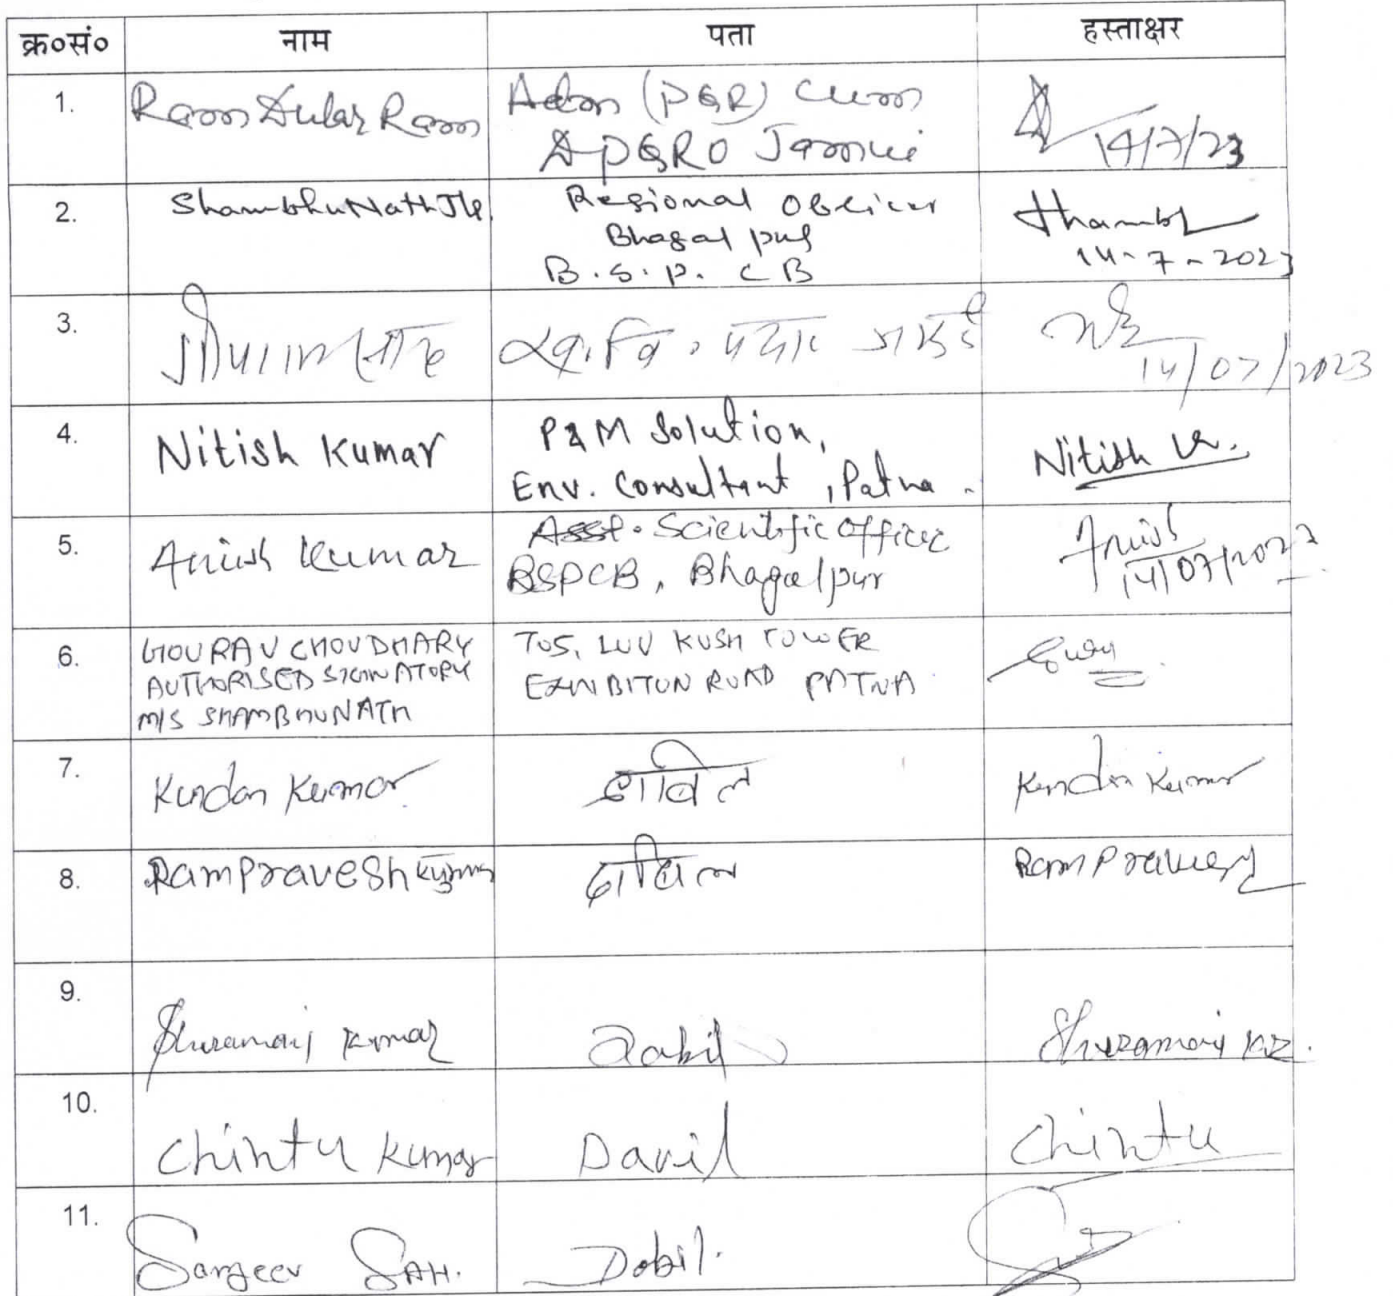 क्र०सं० नाम पता हस्ताक्षर
1. Ram Dular Ram Adm (PGR) Cum
DPGRO Jamui
14/7/23
2. Shambhu Nath Jha Regional Officer
Bhagalpur
B.S.P.CB
Shambhu
14-7-2023
3.
14/07/2023
4. Nitish Kumar P&M Solution,
Env. Consultant, Patna.
Nitish Kr.
5. Anish Kumar Asst. Scientific Officer
BSPCB, Bhagalpur
Anish
14/07/2023
6. GOURAV CHOUDHARY
AUTHORISED SIGNATORY
M/S SHAMBHUNATH
705, LUV KUSH TOWER
EXHIBITON ROAD PATNA
7. Kundan Kumar दाबिल Kundan Kumar
8. RamPravesh Kumar दाबिल RamPravesh
9. Kumar Dabil
10. Chintu Kumar Davil Chintu
11. Sanjeev SAH. Dabil.